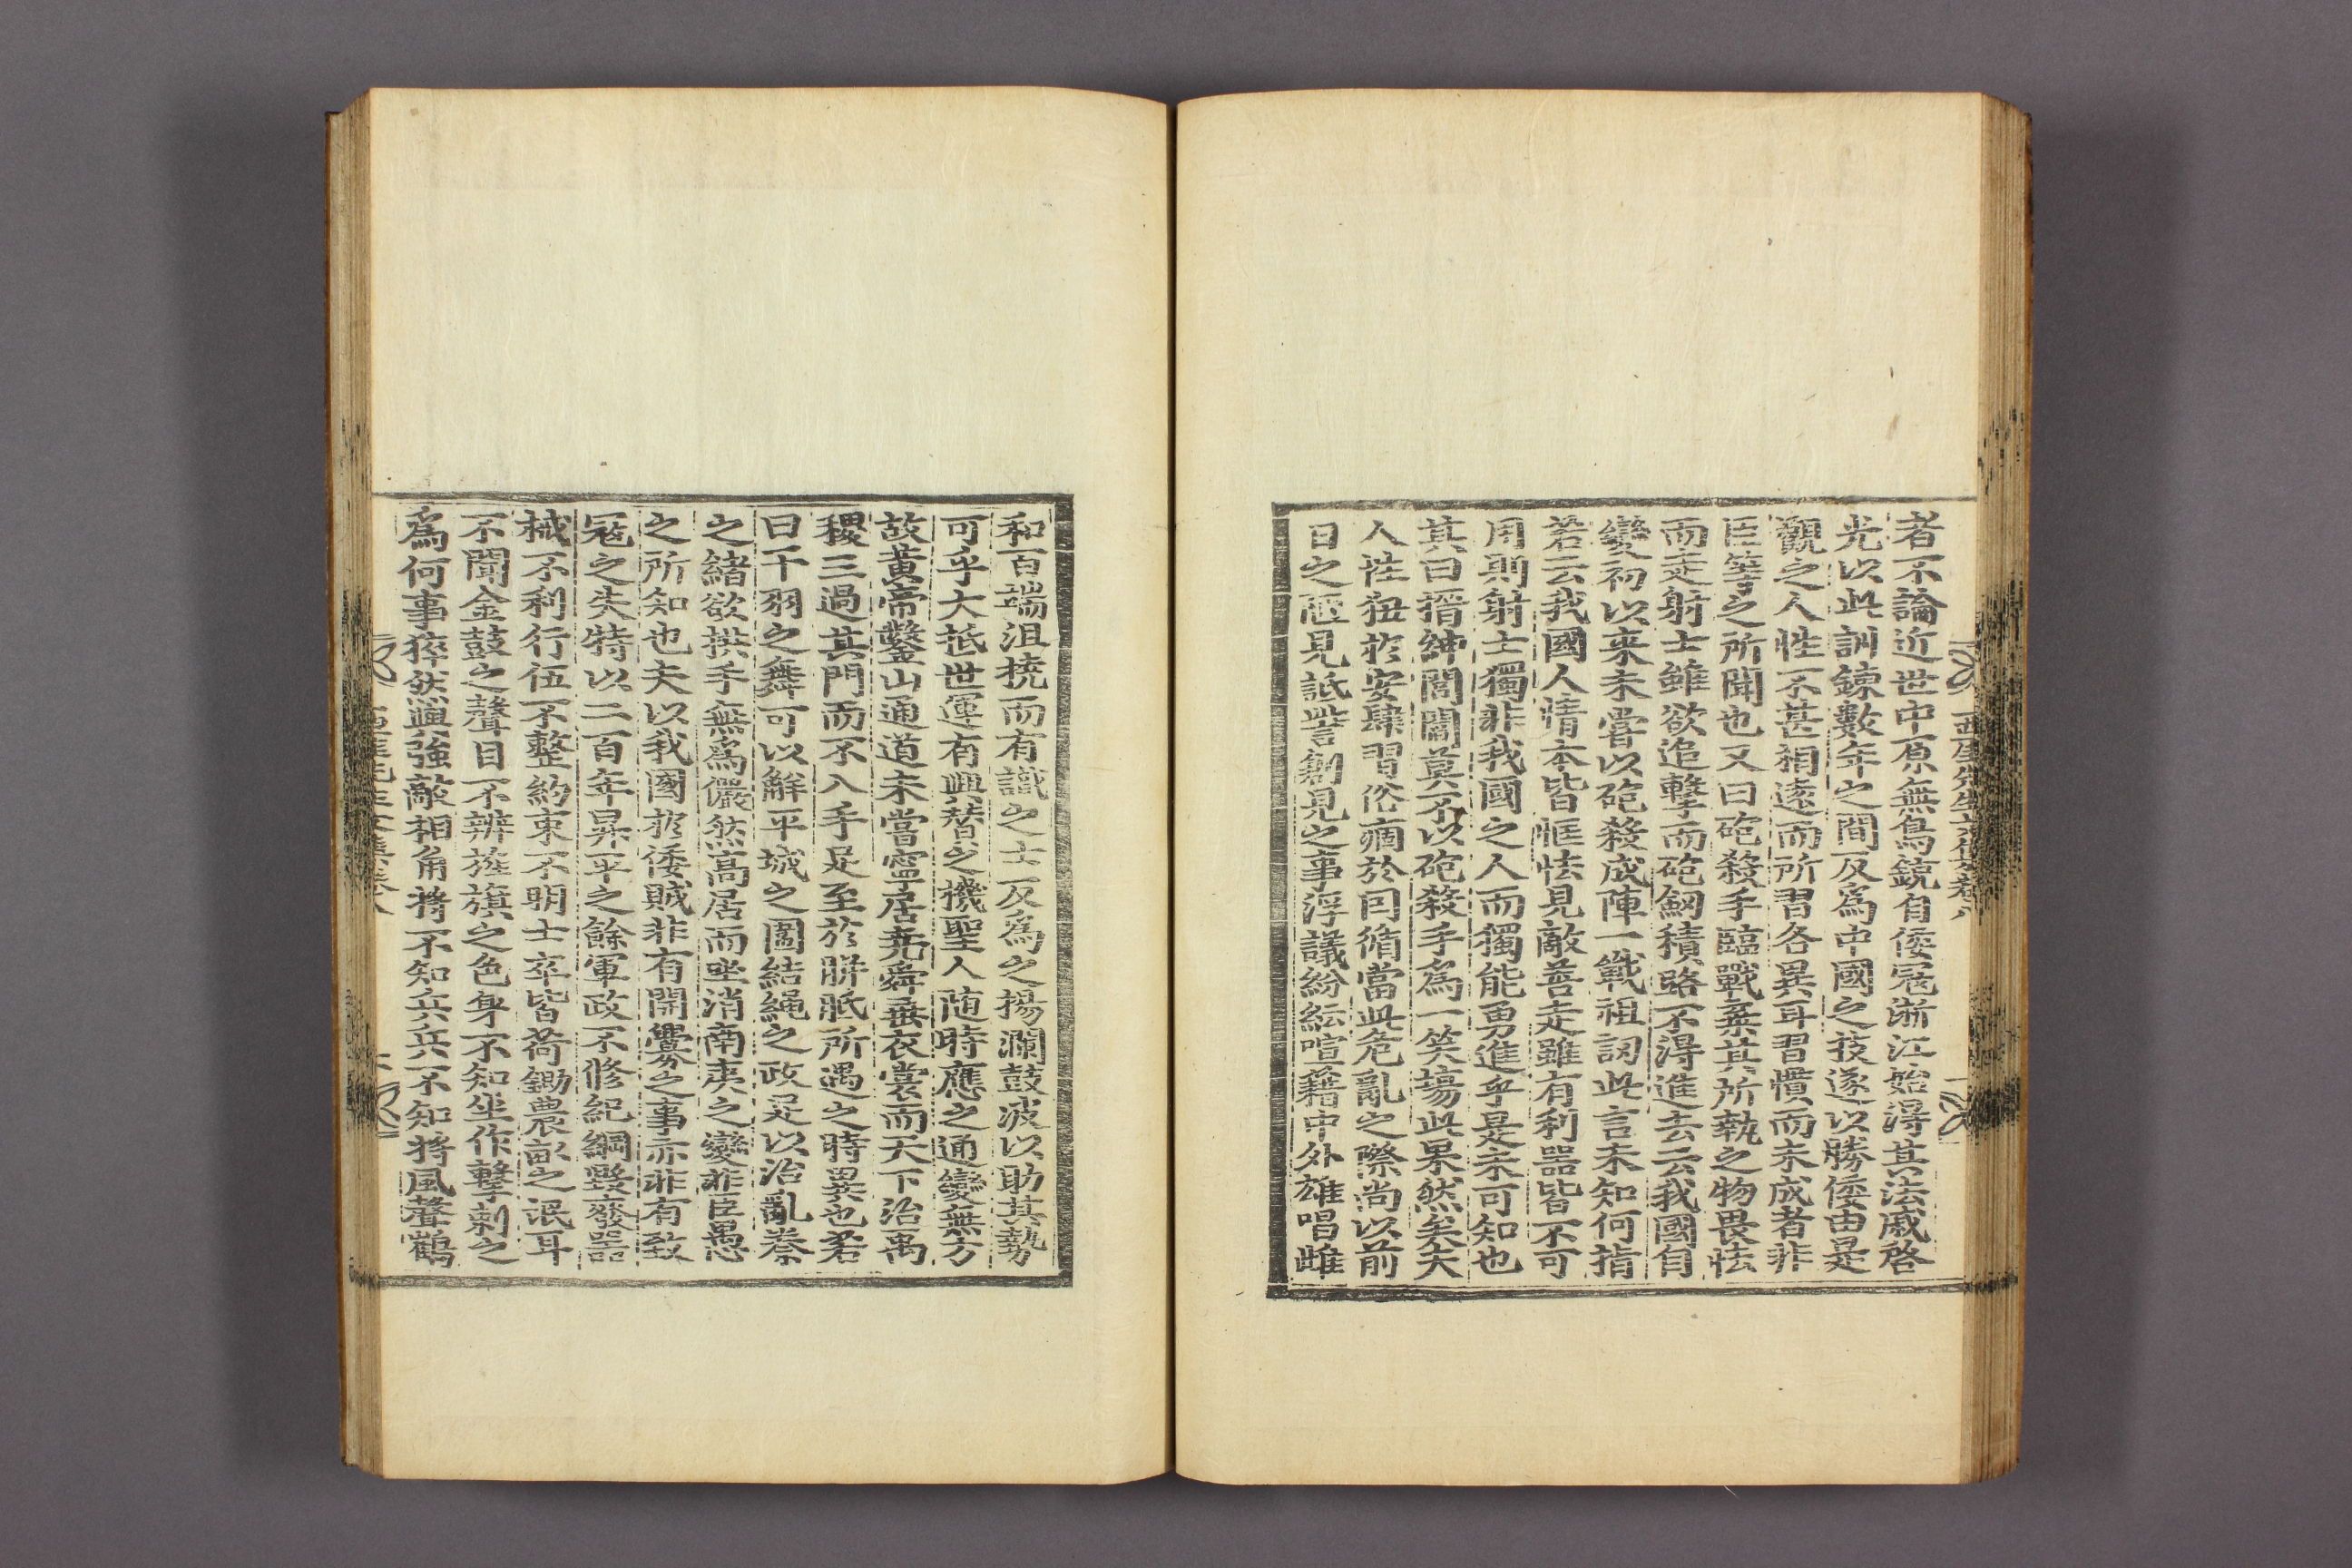 西厓先生文集卷八
者不論近世中原無鳥銃自倭冦浙江始得其法戚啓
光以此訓鍊數年之間反爲中國之技遂以勝倭由是
觀之人性不甚相遠而所習各異耳習慣而未成者非
臣等之所聞也又曰砲殺手臨戰棄其所執之物畏怯
而走射士雖欲追擊而砲劒積路不得進去云我國自
變初以來未嘗以砲殺成陣一戰祖訒此言未知何指
若云我國人情本皆恇怯見敵善走雖有利器皆不可
用則射士獨非我國之人而獨能勇進乎是未可知也
其曰搢紳閭閻莫不以砲殺手爲一笑塲此果然矣夫
人性狃於安肆習俗痼於因循當此危亂之際尚以前
日之陋見詆訾創見之事浮議紛紜喧藉中外雄唱雌
和百端沮撓而有識之士反爲之揚瀾鼓波以助其勢
可乎大抵世運有興替之機聖人随時應之通變無方
故黃帝鑿山通道未嘗寧居堯舜垂衣裳而天下治禹
稷三過其門而不入手足至於胼胝所遇之時異也若
曰干羽之舞可以解平城之圍結繩之政足以治亂秦
之緖欲拱手無爲儼然高居而坐消南夷之變非臣愚
之所知也夫以我國於倭賊非有開釁之事亦非有致
冦之失特以二百年昇平之餘軍政不修紀綱毀廢器
械不利行伍不整約束不明士卒皆荷鋤農畝之氓耳
不聞金鼓之聲目不辨旌旗之色身不知坐作擊刺之
爲何事猝然與強敵相角將不知兵兵不知將風聲鶴